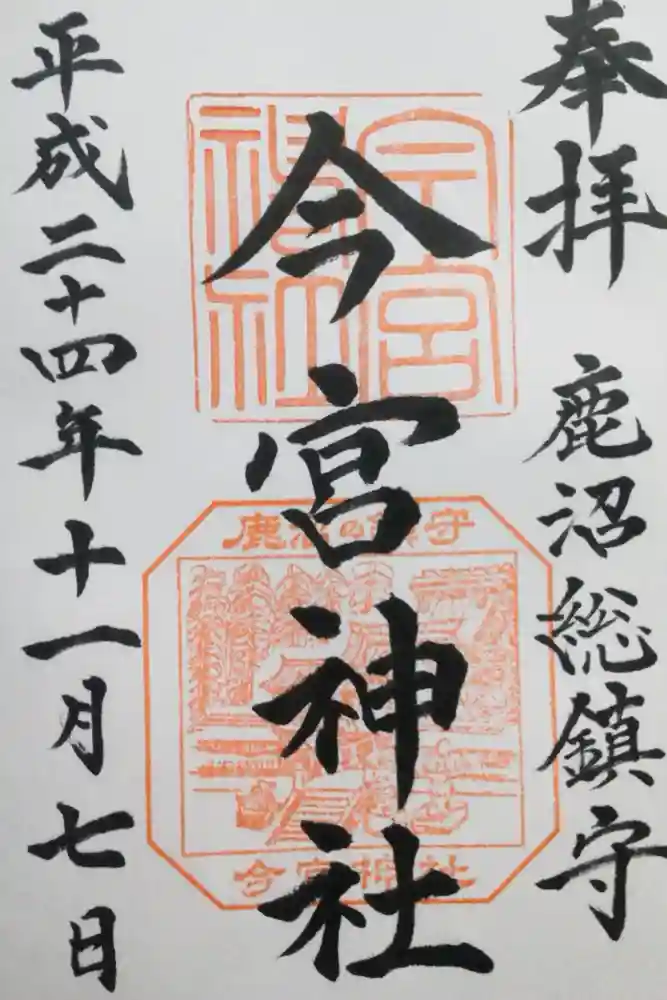 奉拝 鹿沼総鎮守
今宮神社
平成二十四年十一月七日
今宮
神社
鹿沼の鎮守
今宮神社